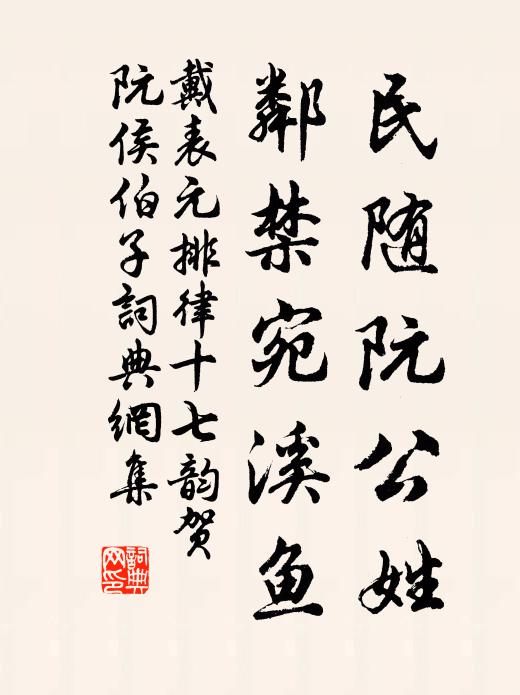 民随阮公姓
鄰禁宛溪鱼
戴表元排律十七韵贺
阮侯伯子詞典網集
詞典网印